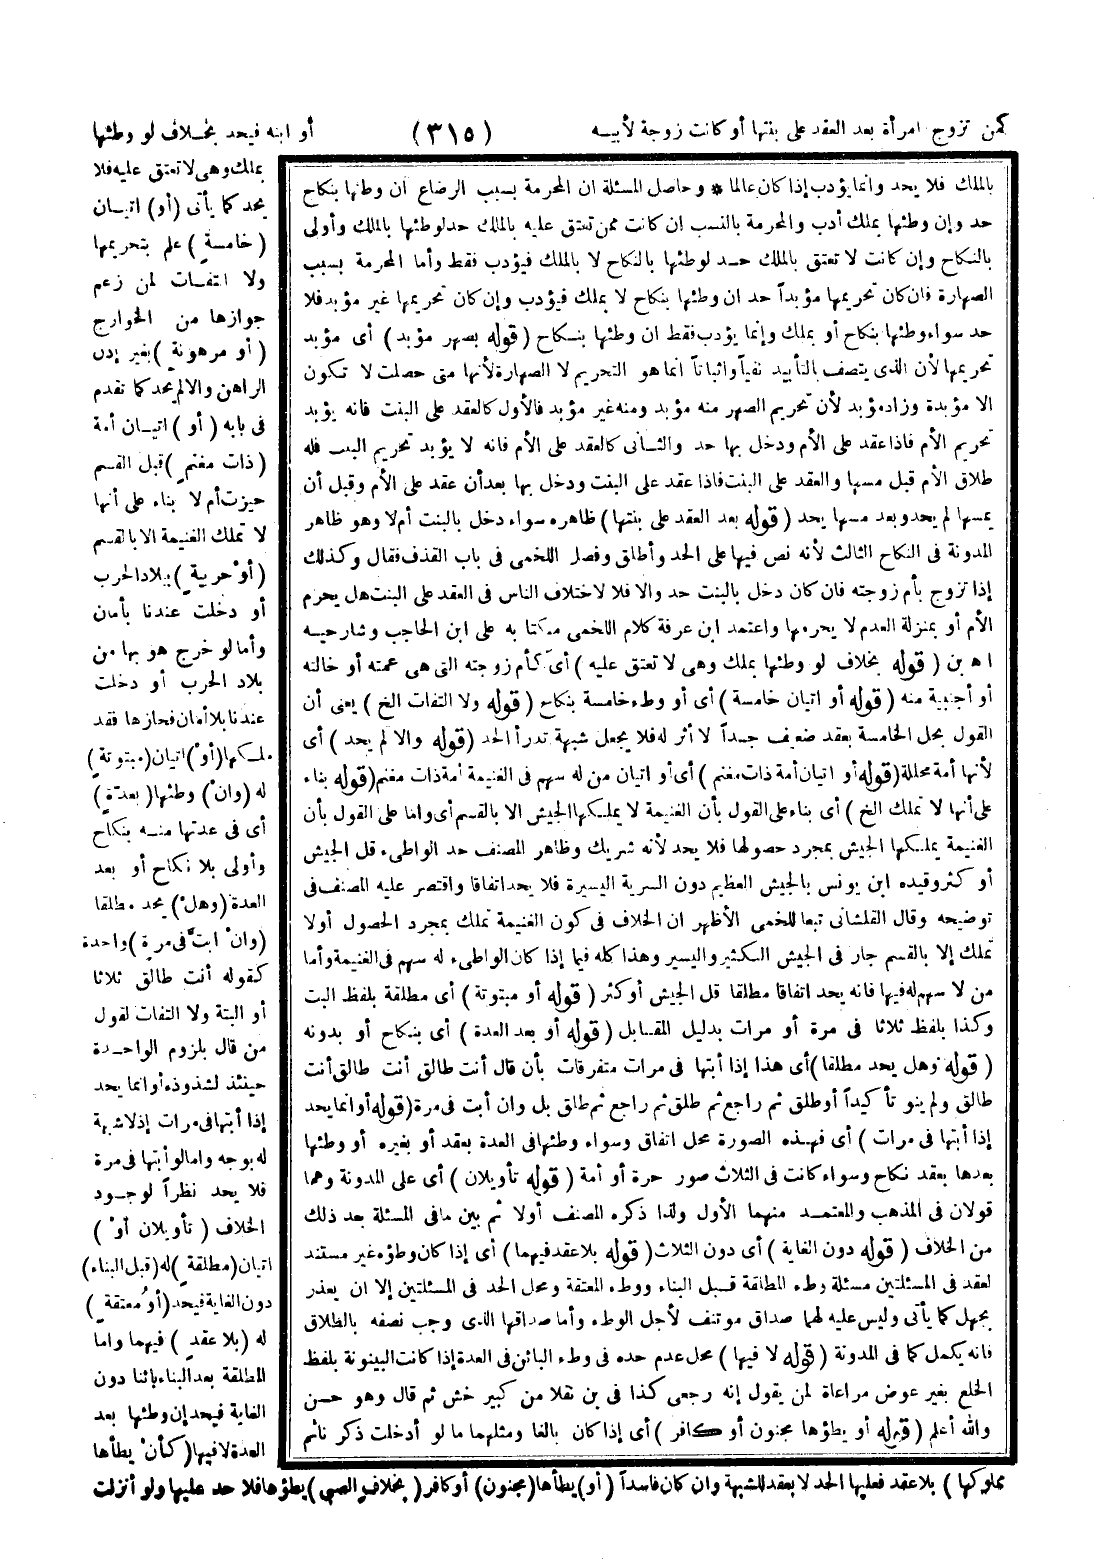 كمن تزوج امرأة بعد العقد على بنتها أو كانت زوجة لأبيه (٣١٥) أو ابنه فيحد بخلاف لو وطئها
بملك وهى لا تعتق عليه فلا
يحد كما يأتى (أو) اتيان
(خامسة) علم بتحريمها
ولا التفات لمن زعم
جوازها من الخوارج
(أو مرهونة) بغير إذن
الراهن والا لم يحد كما تقدم
فى بابه (أو) اتيان أمة
(ذات مغنم) قبل القسم
حيزت أم لا بناء على أنها
لا تملك الغنيمة الا بالقسم
(أو حربية) ببلاد الحرب
أو دخلت عندنا بأمان
وأما لو خرج هو بها من
بلاد الحرب أو دخلت
عندنا بلا أمان فحازها فقد
ملكها (أو) اتيان (مبتوتة)
له (وان) وطئها (بعدة)
أى فى عدتها منه بنكاح
وأولى بلا نكاح أو بعد
العدة (وهل) يحد مطلقا
(وان أبت فى مرة) واحدة
كقوله أنت طالق ثلاثا
أو البتة ولا التفات لقول
من قال بلزوم الواحدة
حينئذ لشذوذه أو انما يحد
إذا أبتها فى مرات إذ لا شبهة
له بوجه واما لو أبتها فى مرة
فلا يحد نظراً لوجود
الخلاف (تأويلان أو)
اتيان (مطلقة) له (قبل البناء)
دون الغاية فيحد (أو معتقة)
له (بلا عقد) فيهما واما
المطلقة بعد البناء بائنا دون
الغاية فيحد إن وطئها بعد
العدة لا فيها (كأن يطأها
بالملك فلا يحد وانما يؤدب إذا كان عالما * وحاصل المسئلة ان المحرمة بسبب الرضاع ان وطئها بنكاح
حد وإن وطئها بملك أدب والمحرمة بالنسب ان كانت ممن تعتق عليه بالملك حد لو وطئها بالملك وأولى
بالنكاح وإن كانت لا تعتق بالملك حد لو وطئها بالنكاح لا بالملك فيؤدب فقط وأما المحرمة بسبب
الصهارة فان كان تحريمها مؤبداً حد ان وطئها بنكاح لا بملك فيؤدب وإن كان تحريمها غير مؤبد فلا
حد سواء وطئها بنكاح أو بملك وإنما يؤدب فقط ان وطئها بنكاح (قوله بصهر مؤبد) أى مؤبد
تحريمها لأن الذى يتصف بالتأبيد نفياً واثباتاً انما هو التحريم لا الصهارة لأنها متى حصلت لا تكون
الا مؤبدة وزاد مؤبد لأن تحريم الصهر منه مؤبد ومنه غير مؤبد فالأول كالعقد على البنت فانه يؤبد
تحريم الأم فاذا عقد على الأم ودخل بها حد والثانى كالعقد على الأم فانه لا يؤبد تحريم البنت فله
طلاق الأم قبل مسها والعقد على البنت فاذا عقد على البنت ودخل بها بعد أن عقد على الأم وقبل أن
يمسها لم يحد وبعد مسها يحد (قوله بعد العقد على بنتها) ظاهره سواء دخل بالبنت أم لا وهو ظاهر
المدونة فى النكاح الثالث لأنه نص فيها على الحد وأطلق وفصل اللخمى فى باب القذف فقال وكذلك
إذا تزوج بأم زوجته فان كان دخل بالبنت حد والا فلا لاختلاف الناس فى العقد على البنت هل يحرم
الأم أو بمنزلة العدم لا يحرمها واعتمد ابن عرفة كلام اللخمى منكتا به على ابن الحاجب وشارحيه
اه بن (قوله بخلاف لو وطئها بملك وهى لا تعتق عليه) أى كأم زوجته التى هى عمته أو خالته
أو أجنبية منه (قوله أو اتيان خامسة) أى أو وطء خامسة بنكاح (قوله ولا التفات الخ) يعنى أن
القول بحل الخامسة بعقد ضعيف جداً لا أثر له فلا يجعل شبهة تدرأ الحد (قوله والا لم يحد) أى
لأنها أمة محللة (قوله أو اتيان أمة ذات مغنم) أى أو اتيان من له سهم فى الغنيمة أمة ذات مغنم (قوله بناء
على أنها لا تملك الخ) أى بناء على القول بأن الغنيمة لا يملكها الجيش الا بالقسم أى واما على القول بأن
الغنيمة يملكها الجيش بمجرد حصولها فلا يحد لأنه شريك وظاهر المصنف حد الواطىء قل الجيش
أو كثر وقيده ابن يونس بالجيش العظيم دون السرية اليسيرة فلا يحد اتفاقا واقتصر عليه المصنف فى
توضيحه وقال القلشانى تبعا للخمى الأظهر ان الخلاف فى كون الغنيمة تملك بمجرد الحصول أولا
تملك إلا بالقسم جار فى الجيش الكثير واليسير وهذا كله فيما إذا كان الواطىء له سهم فى الغنيمة وأما
من لا سهم له فيها فانه يحد اتفاقا مطلقا قل الجيش أو كثر (قوله أو مبتوتة) أى مطلقة بلفظ البت
وكذا بلفظ ثلاثا فى مرة أو مرات بدليل المقابل (قوله أو بعد العدة) أى بنكاح أو بدونه
(قوله وهل يحد مطلقا) أى هذا إذا أبتها فى مرات متفرقات بأن قال أنت طالق أنت طالق أنت
طالق ولم ينو تأكيداً أو طلق ثم راجع ثم طلق ثم راجع ثم طلق بل وان أبت فى مرة (قوله أو انما يحد
إذا أبتها فى مرات) أى فهذه الصورة محل اتفاق وسواء وطئها فى العدة بعقد أو بغيره أو وطئها
بعدها بعقد نكاح وسواء كانت فى الثلاث صور حرة أو أمة (قوله تأويلان) أى على المدونة وهما
قولان فى المذهب والمعتمد منهما الأول ولذا ذكره المصنف أولا ثم بين ما فى المسئلة بعد ذلك
من الخلاف (قوله دون الغاية) أى دون الثلاث (قوله بلا عقد فيهما) أى إذا كان وطؤه غير مستند
لعقد فى المسئلتين مسئلة وطء المطلقة قبل البناء ووطء المعتقة ومحل الحد فى المسئلتين إلا ان يعذر
بجهل كما يأتى وليس عليه لهما صداق مؤتنف لأجل الوطء وأما صداقها الذى وجب نصفه بالطلاق
فانه يكمل كما فى المدونة (قوله لا فيها) محل عدم حده فى وطء البائن فى العدة إذا كانت البينونة بلفظ
الخلع بغير عوض مراعاة لمن يقول إنه رجعى كذا فى بن نقلا من كبير خش ثم قال وهو حسن
والله أعلم (قوله أو يطؤها مجنون أو كافر) أى إذا كان بالغا ومثلهما ما لو أدخلت ذكر نائم
مملوكها) بلا عقد فعليها الحد لا بعقد للشبهة وان كان فاسداً (أو) يطأها (مجنون) أو كافر (بخلاف الصبي) يطؤها فلا حد عليها ولو أنزلت